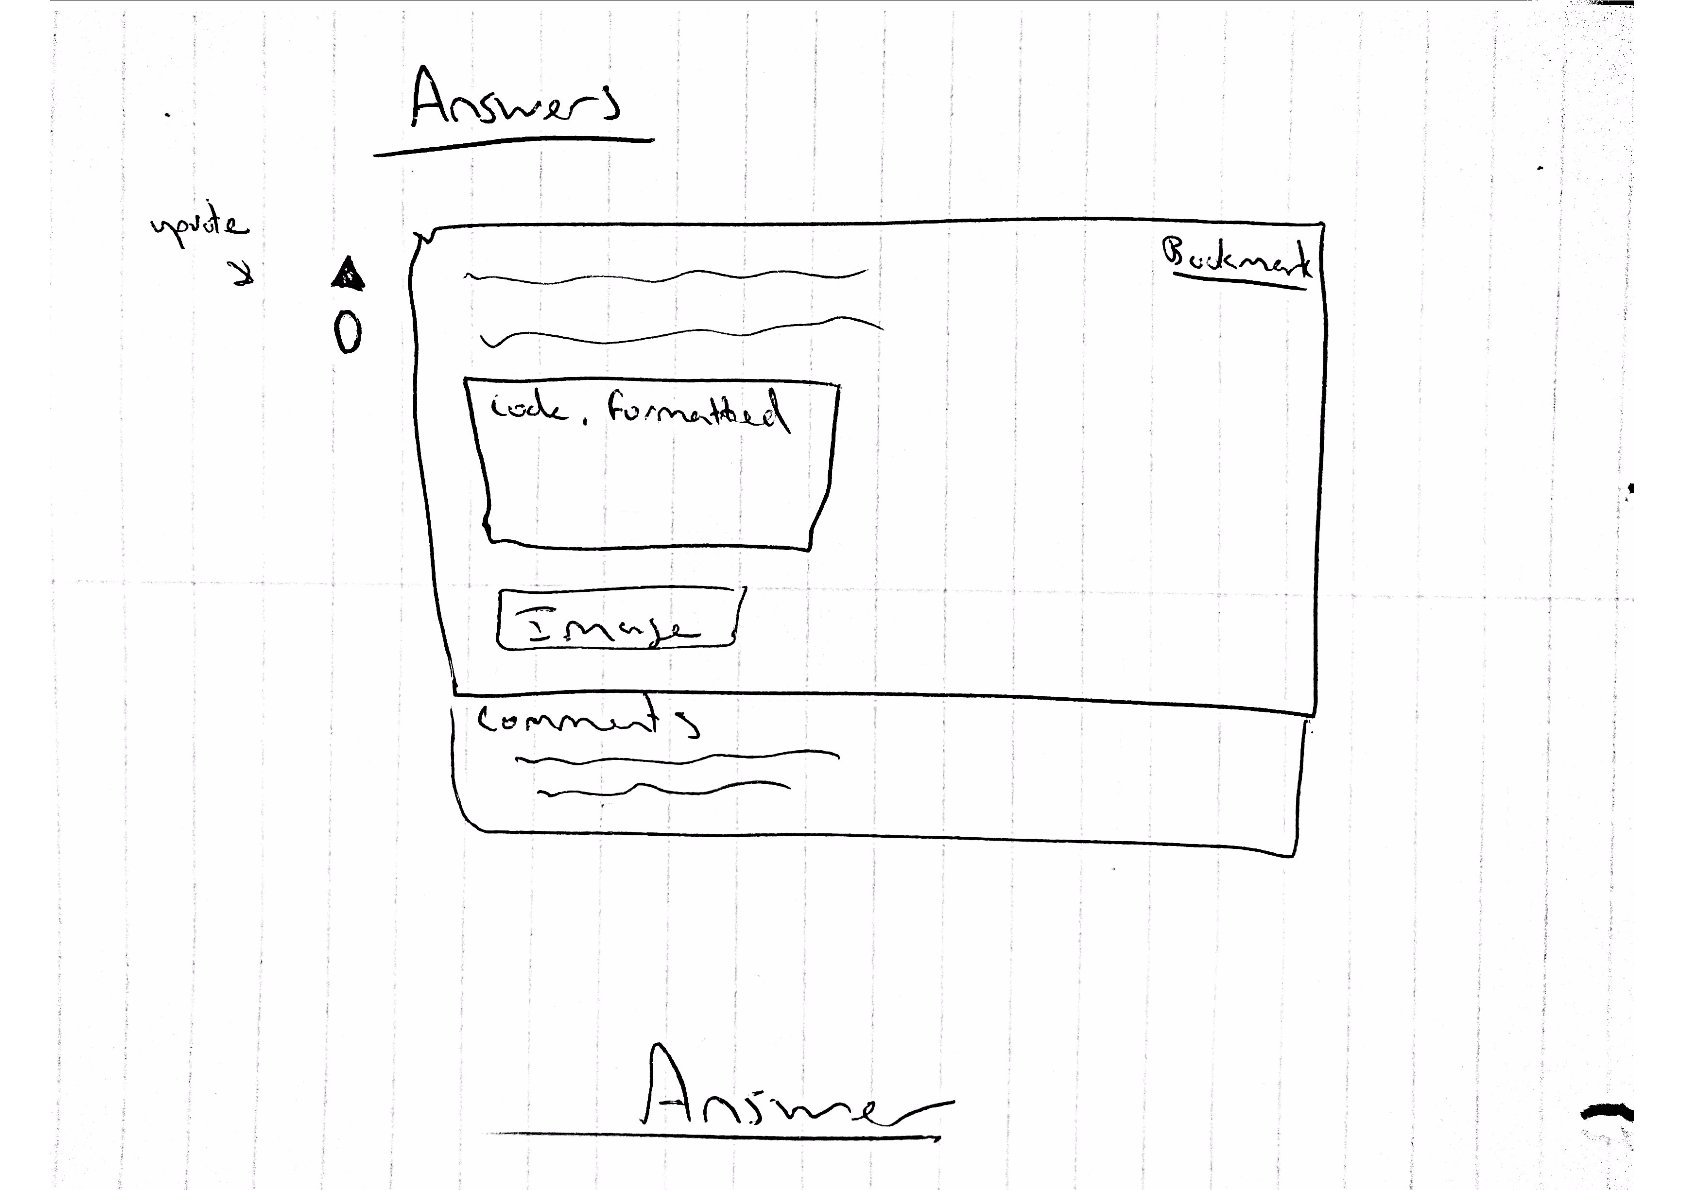 Answers
upvote
0
Bookmark
code, formatted
Image
comments
Answer